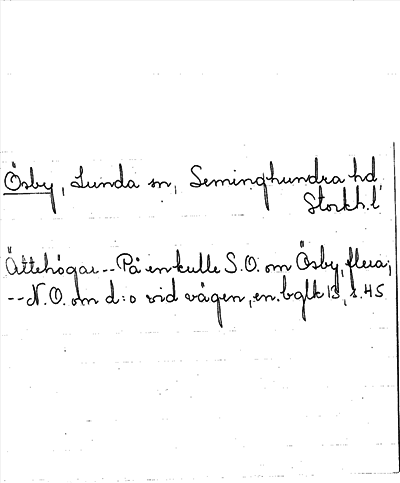 Ösby, Lunda sn, Seminghundra hd,
Stockh.l
Ättehögar -- På en kulle S.O. om Ösby, flera;
-- N.O. om d:o vid vägen, en. bglk 13, s. 45